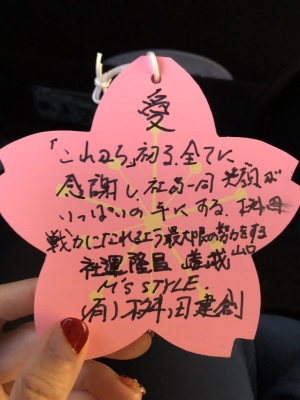 愛
「これから」初る、全てに
感謝し、社員一同 笑顔が
いっぱいの年にする。
戦力になれるよう最大限の努力をする
社運隆昌 山口
M's STYLE
(有) 田建創